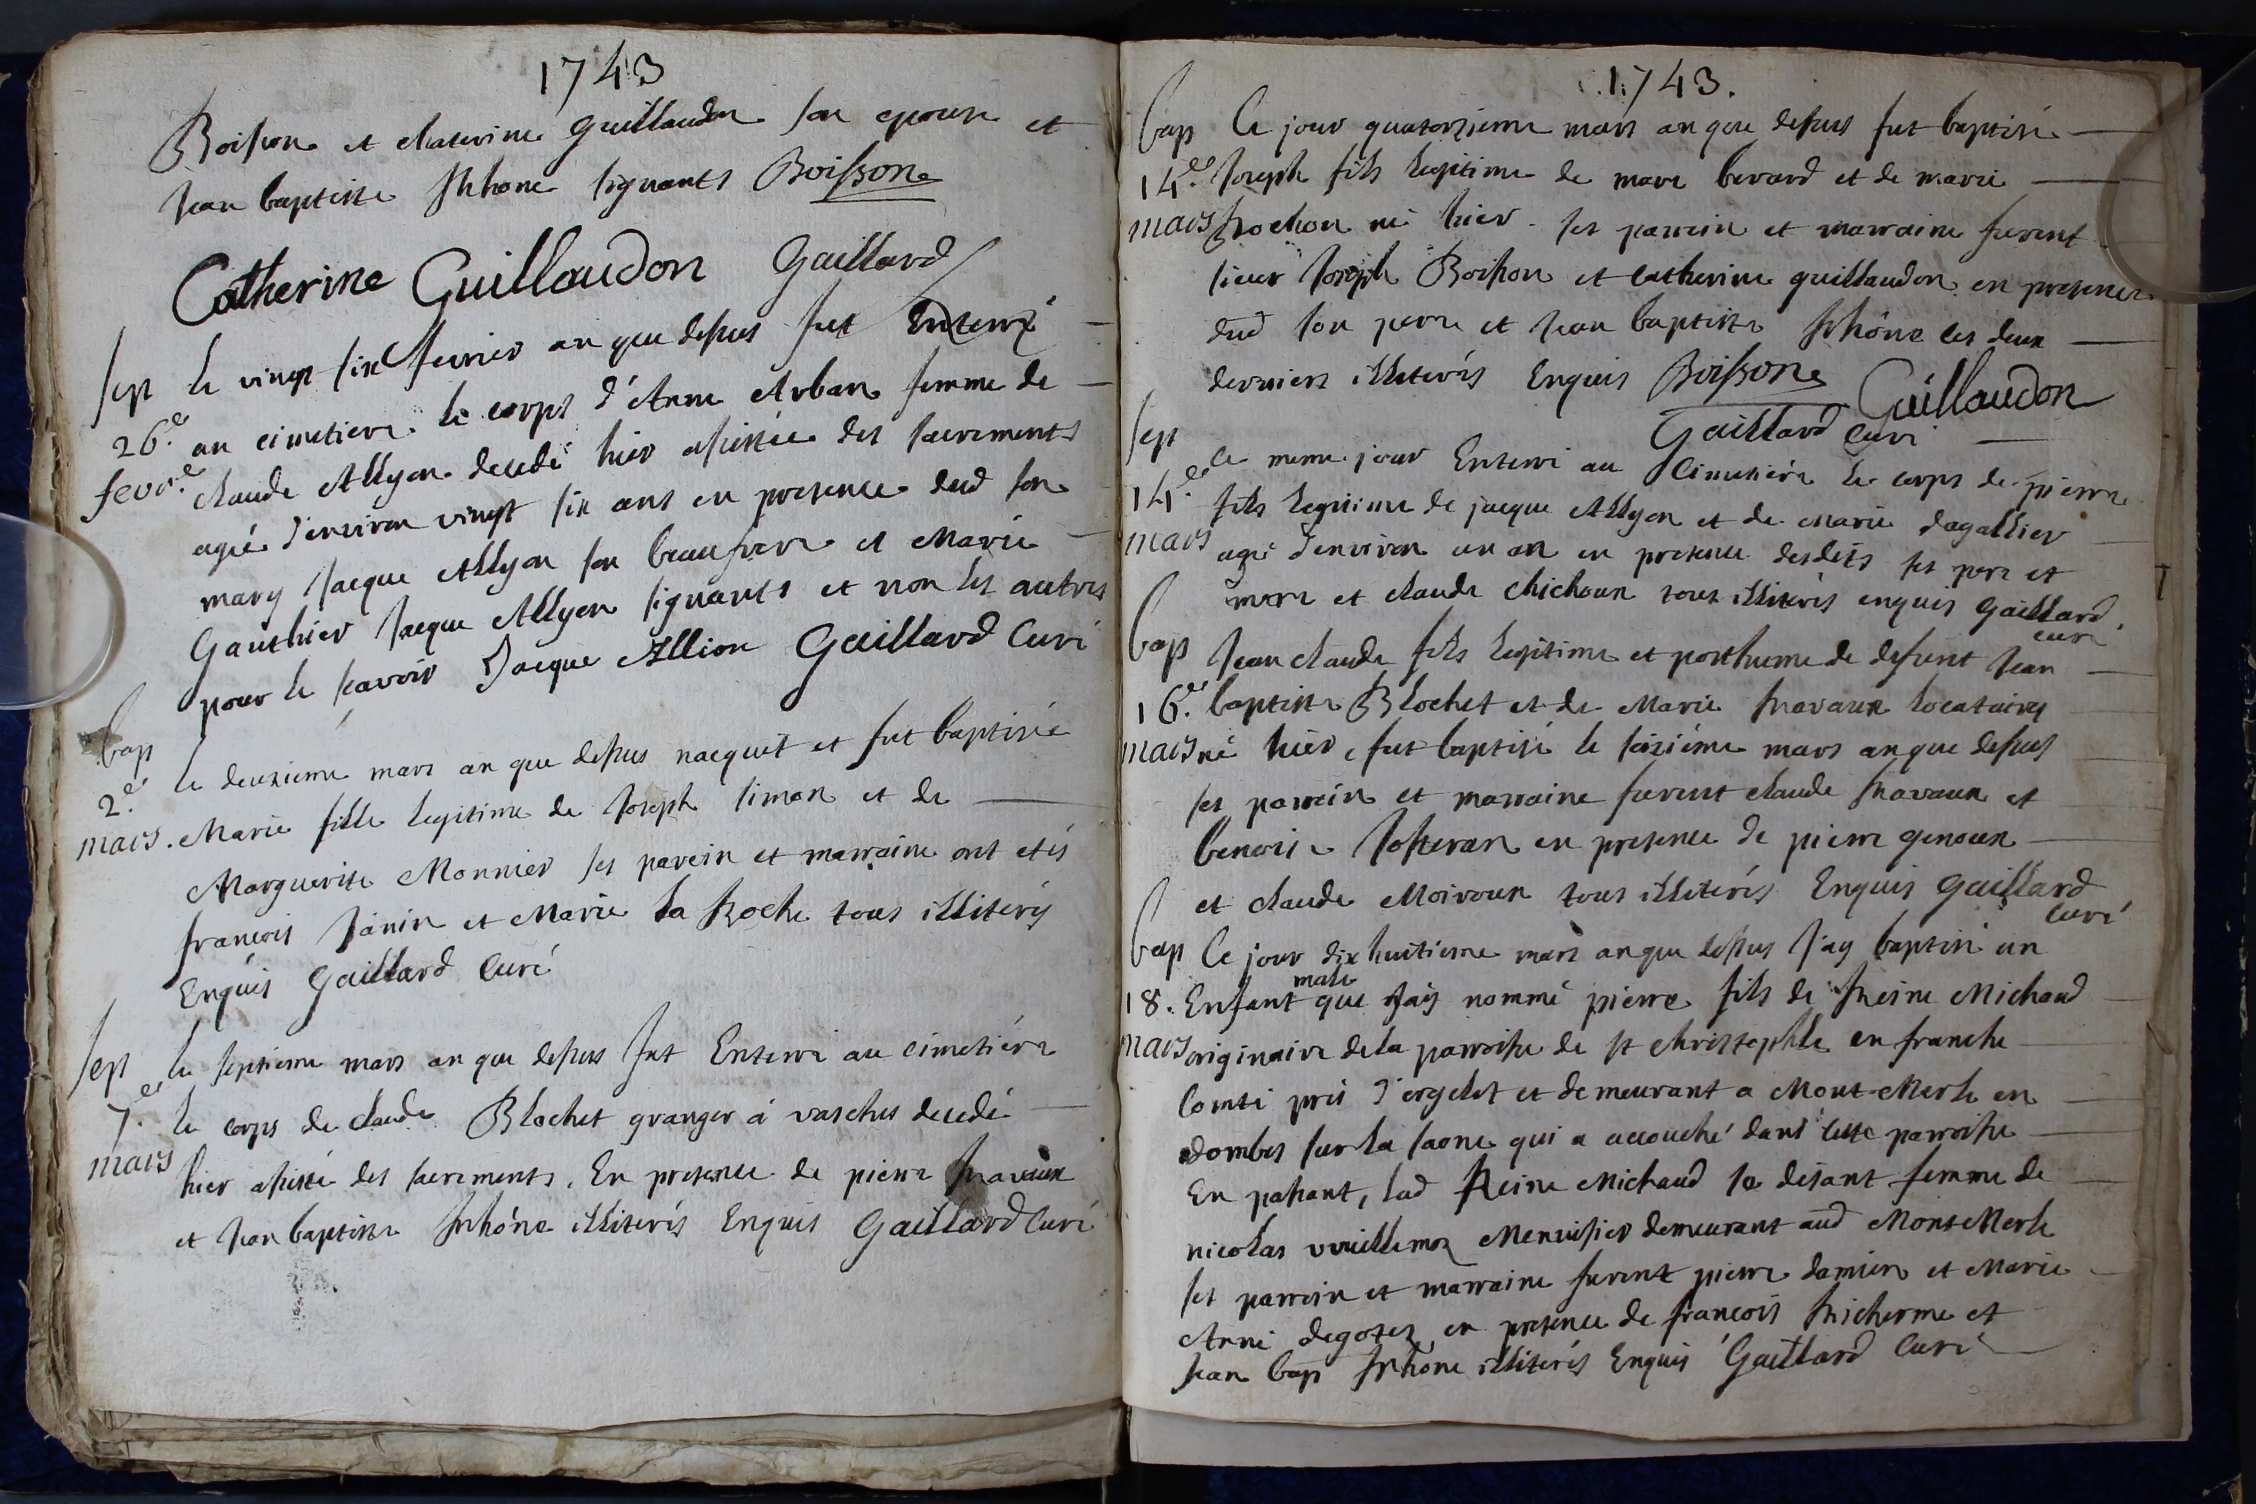 1743
Boisson et chaterine Guillaudon son epouse et
Jean baptiste Rhône signants Boisson
Catherine Guillaudon Gaillard
Sep le vingt six fevrier an que dessus fut Enterré
26.e au cimetiere le corps d'Anne Arban femme de
fevr.e claude Allyon decedé hier assistée des sacrements
agée d'environ vingt six ans en presence dud son
mary Jacque Allyon son beaufrere et Marie
Gauthier Jacque Allyon signants et non les autres
pour le scavoir Jacque Allion Gaillard Curé
bap le deuxieme mars an que dessus nacquit et fut baptisée
2.e Marie fille legitime de Joseph Simon et de
mars. Marguerite Monnier ses parein et marraine ont etés
francois Janin et Marie la Roche tous illiterés
Enquis Gaillard Curé
Sep le septieme mars an que dessus fut Enterré au cimetiére
7.e le corps de claude Blochet granger à vasches decedé
mars hier assisté des sacrements. En presence de pierre travaux
et Jean baptiste Rhône illiterés Enquis Gaillard Curé
1743.
bap Ce jour quatorzieme mars an que dessus fut baptisé
14.e Joseph fils legitime de marc berard et de marie
mars trochon né hier. ses parrein et marraine furent
sieur Joseph Boisson et catherine guillaudon en presence
dud son pere et Jean baptiste Rhône les deux
derniers illiterés Enquis Boisson Guillaudon
Gaillard Curé
Sep ce meme jour Enterré au Cimetiére le corps de pierre
14.e fils legitime de jacque Allyon et de Marie dagallier
mars agé d'environ un an en presence desdits ses pere et
mere et claude chichoux tous illiterés enquis Gaillard
curé
bap Jean claude fils legitime et posthume de defunt Jean
16.e baptiste Blochet et de Marie travaux locataires
mars né hier, fut baptisé le seiziéme mars an que dessus
ses parrein et marraine furent claude travaux et
benoiste Josseran en presence de pierre genoux
et claude Moiroux tous illiterés Enquis Gaillard
Curé
bap Ce jour dix huitieme mars an que dessus J'ay baptisé un
male
18. Enfant que Jay nommé pierre fils de Reine Michaud
mars originaire de la parroisse de st christophle en franche
Comté prés d'orgelet et demeurant a Mont-Merle en
dombes sur la saone qui a accouché dans cette parroisse
En passant, lad Reine Michaud se disant femme de
nicolas vuillemoz Menuisier demeurant aud Mont Merle
ses parrein et marraine furent pierre damien et Marie
Anne degotez en presence de francois Richerme et
Jean bap Rhône illiterés Enquis Gaillard Curé